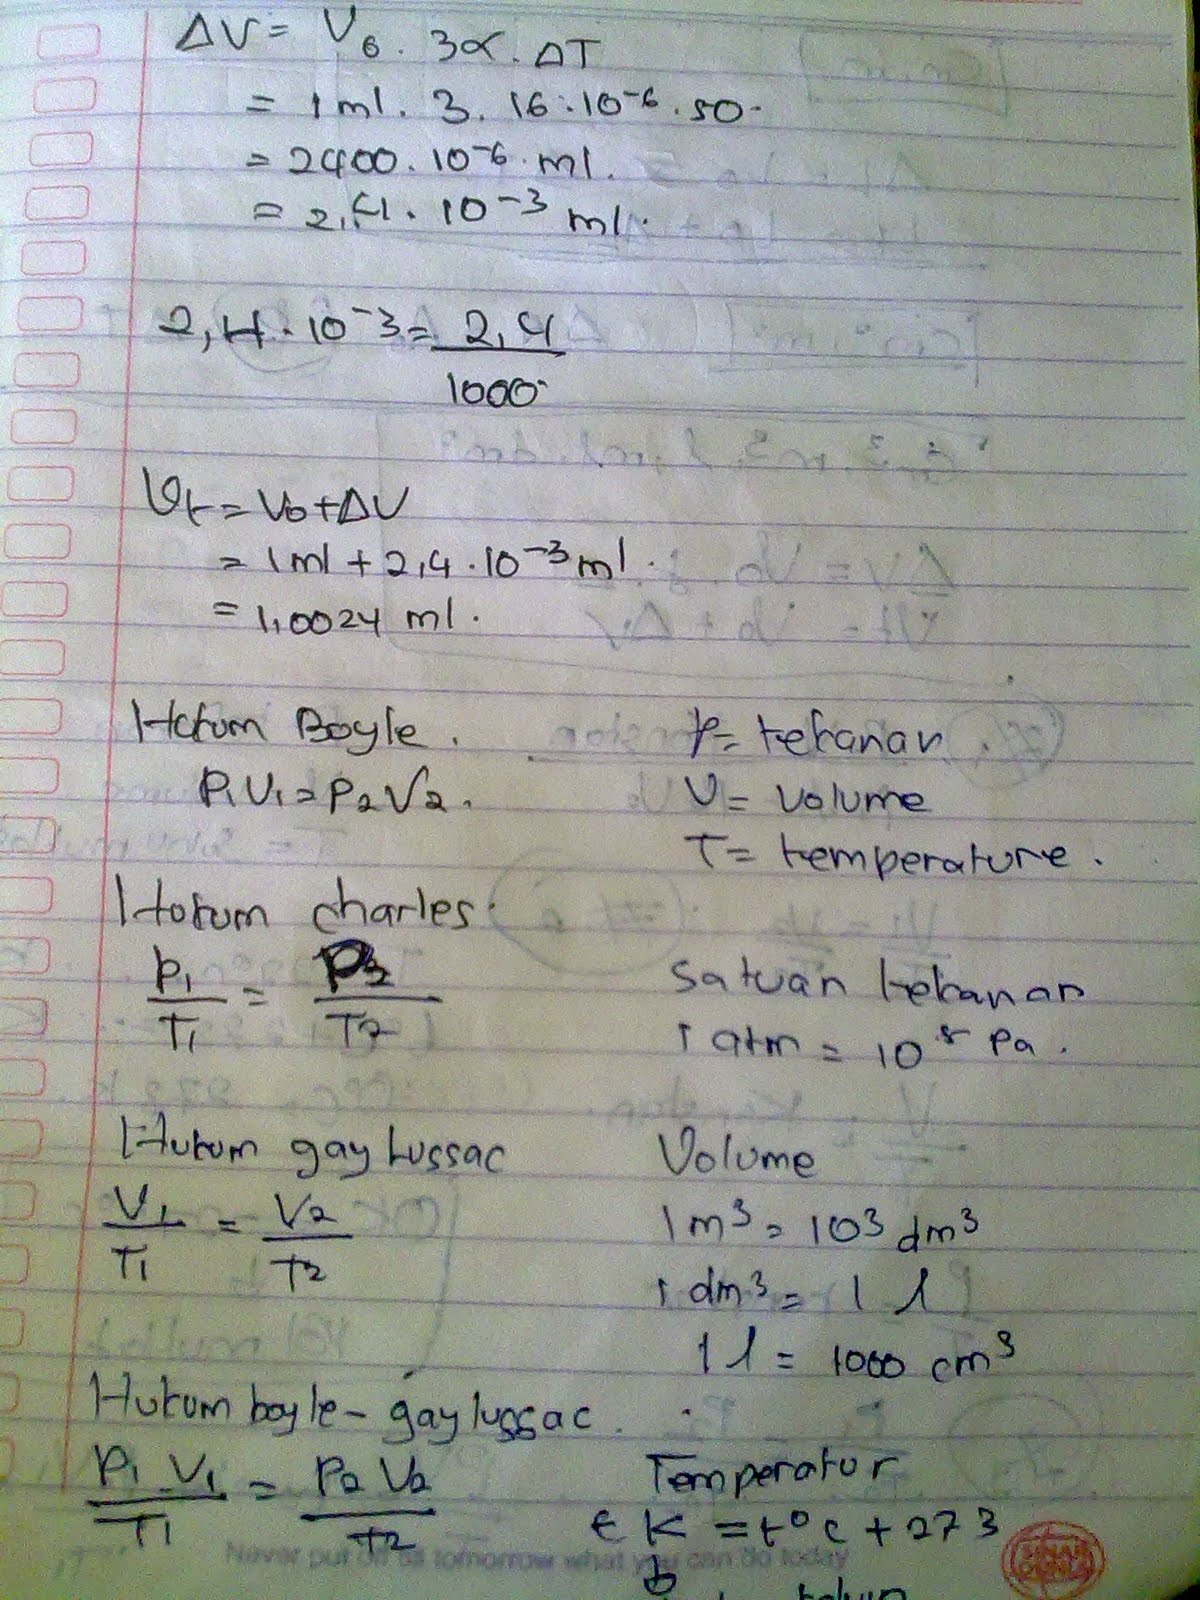 ΔV = V₀ . 3α . ΔT
= 1 ml . 3 . 16 . 10⁻⁶ . 50
= 2400 . 10⁻⁶ . ml.
= 2,4 . 10⁻³ ml.
2,4 . 10⁻³ = 2,4 / 1000
Vt = V₀ + ΔV
= 1 ml + 2,4 . 10⁻³ ml.
= 1,0024 ml.
Hukum Boyle.
P₁V₁ = P₂V₂.
P = tekanan
V = volume
T = temperature.
Hukum charles
P₁/T₁ = P₂/T₂
Satuan tekanan
1 atm = 10⁵ Pa.
Hukum gay lussac
V₁/T₁ = V₂/T₂
Volume
1 m³ = 10³ dm³
1 dm³ = 1 l
1 l = 1000 cm³
Hukum boyle - gay lussac.
P₁ V₁/T₁ = P₂ V₂/T₂
Temperatur
t K = t°c + 273
kelvin
Never put off till tomorrow what you can do today